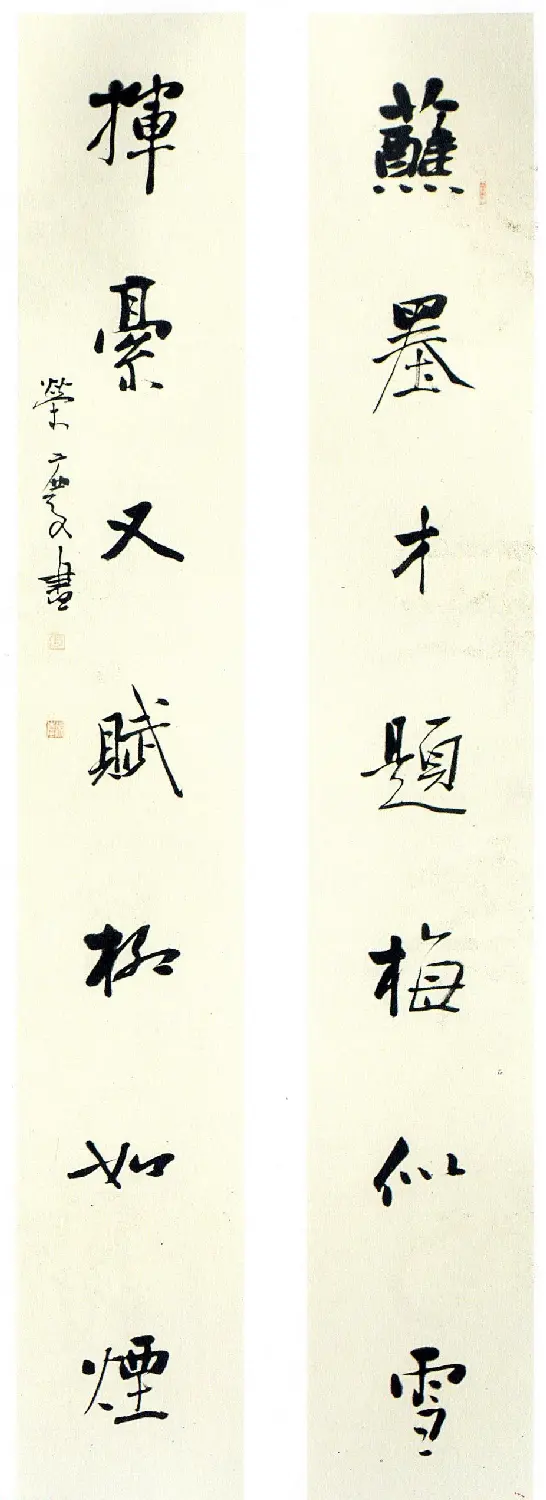 蘸墨才題梅似雪
揮豪又賦柳如煙
榮慶書